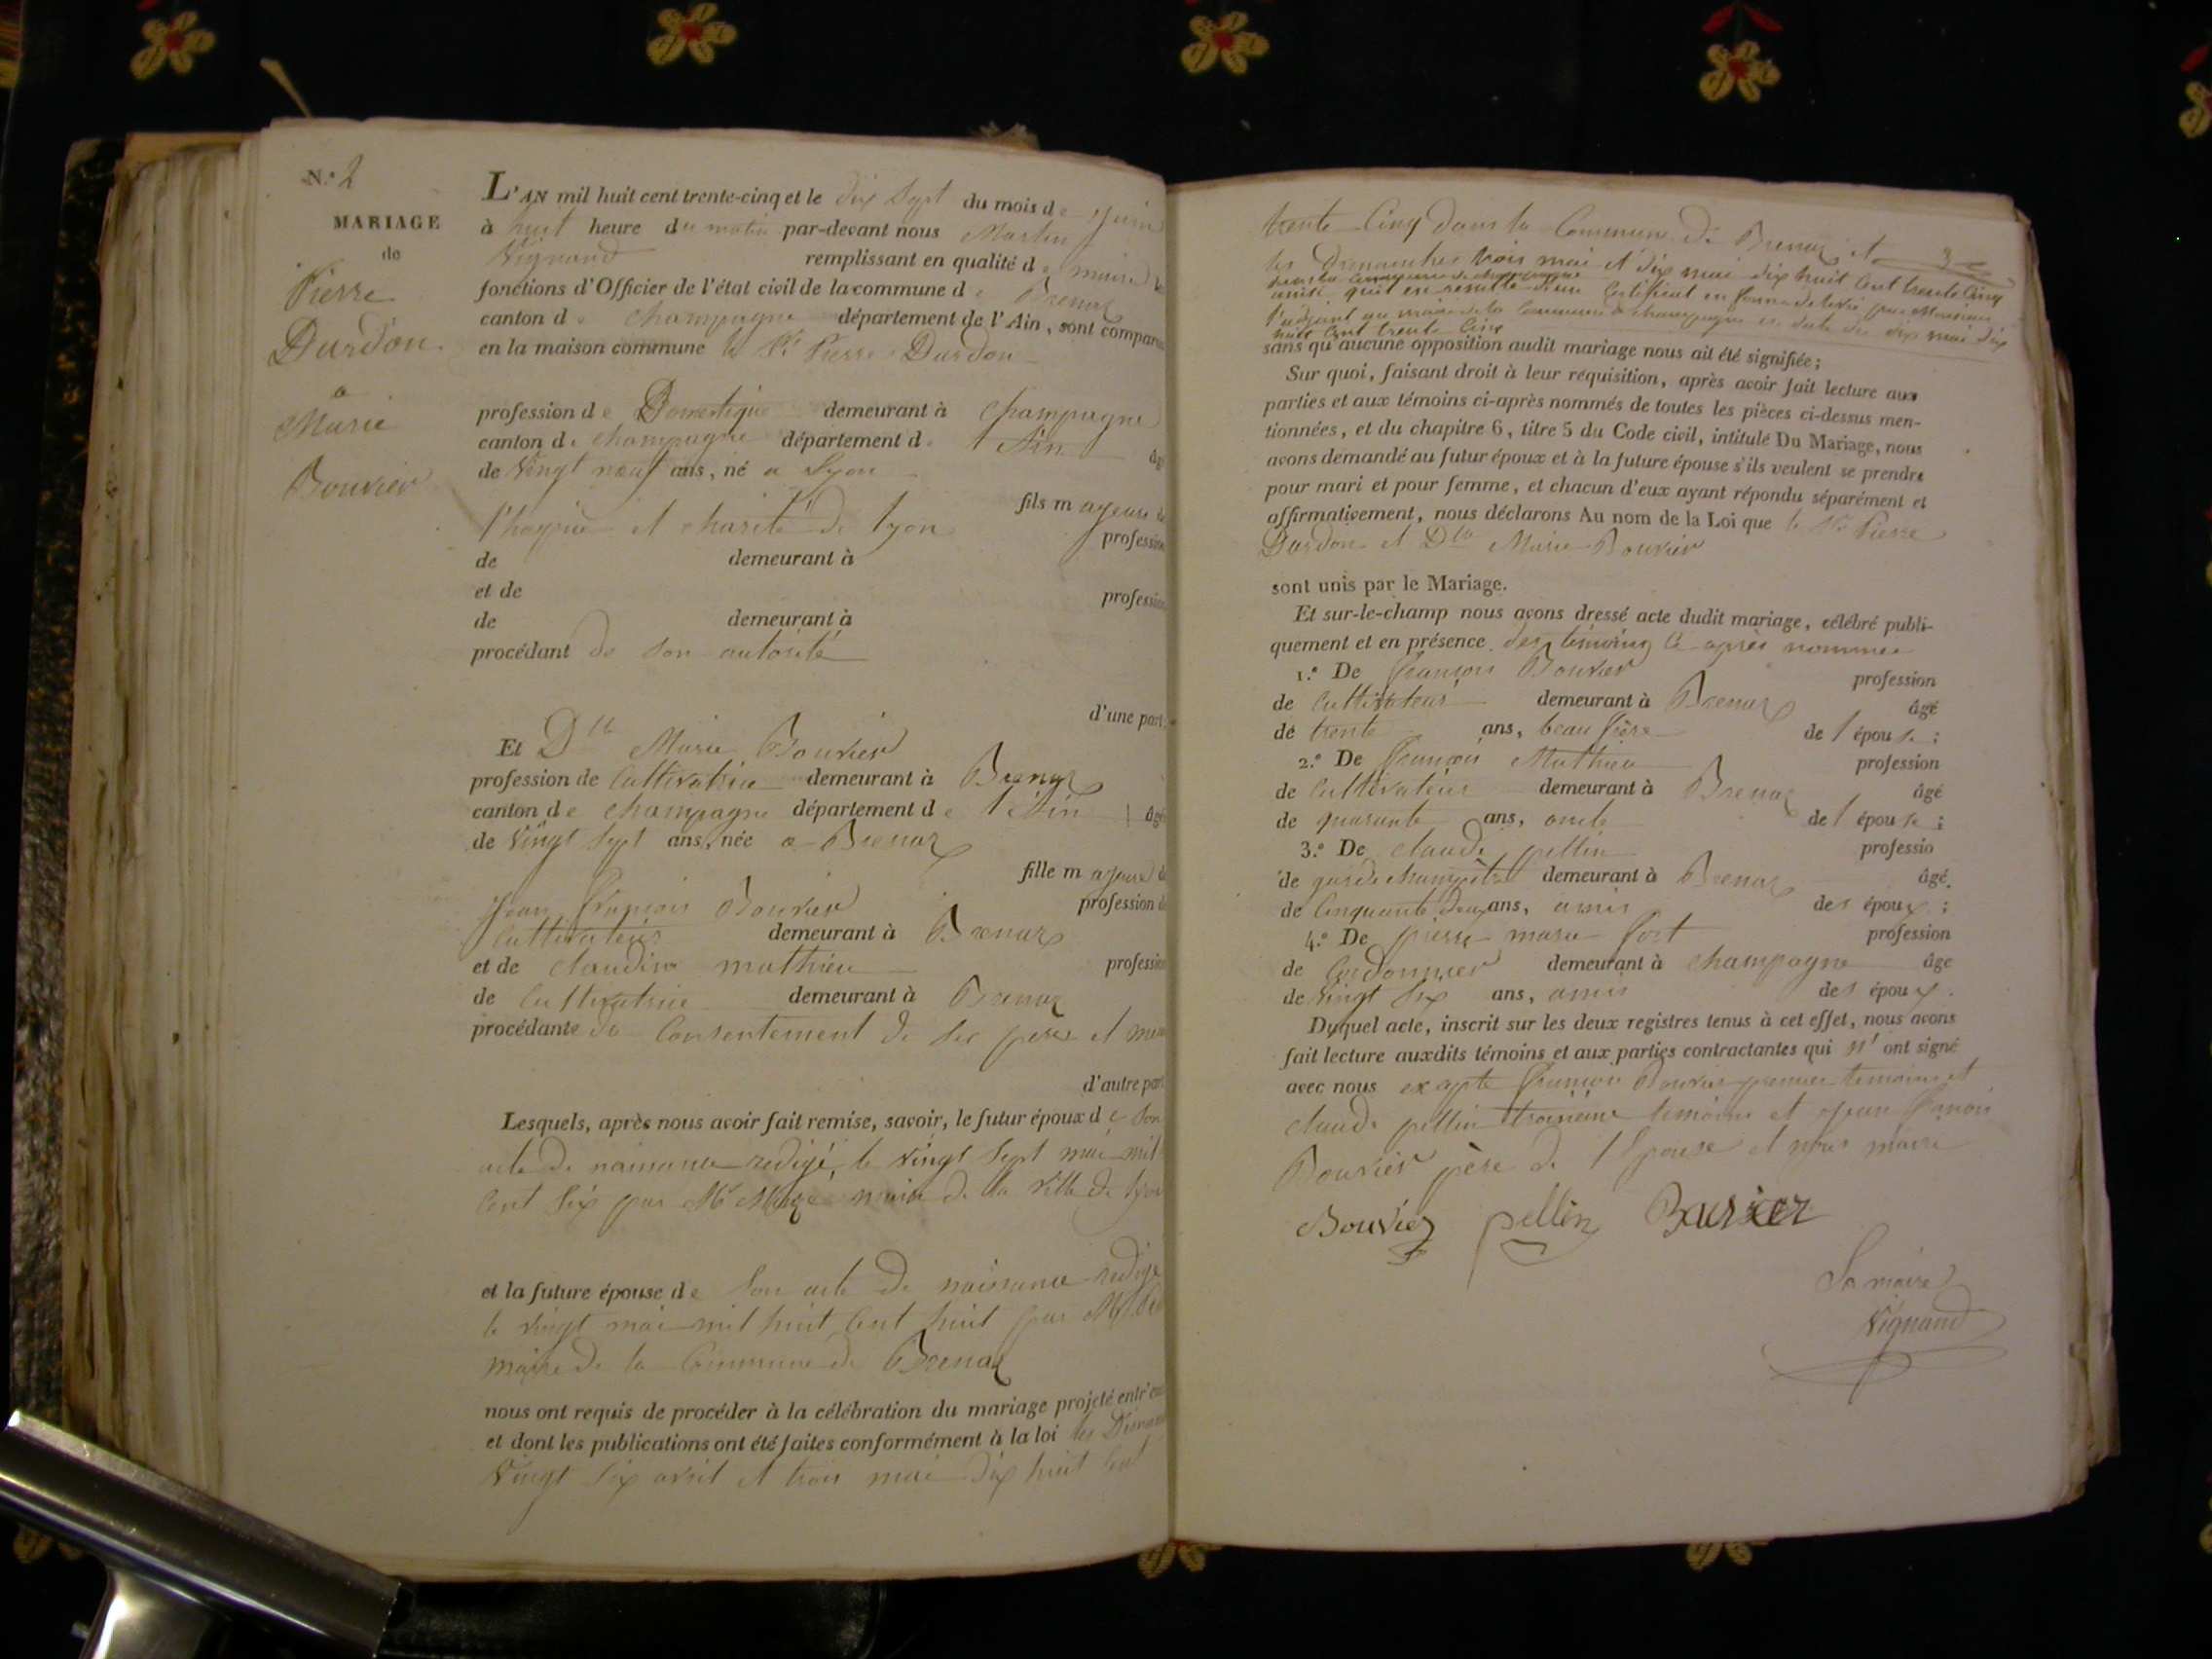 N.º 2
MARIAGE
de
Pierre
Durdon
a
Marie
Bouvier
L'AN mil huit cent trente-cinq et le dix Sept du mois de Juin
à huit heure du matin par-devant nous Martin
Vignand remplissant en qualité de maire les
fonctions d'Officier de l'état civil de la commune de Brenaz
canton de Champagne département de l'Ain, sont comparus
en la maison commune le Sr Pierre Durdon
profession de Domestique demeurant à Champagne
canton de Champagne département de l'Ain âgé
de Vingt neuf ans, né a Lyon
fils majeur de
l'hospice et charité de Lyon profession
de demeurant à
et de profession
de demeurant à
procédant de Son autorité
d'une part;
Et Dlle Marie Bouvier
profession de Cultivatrice demeurant à Brenaz
canton de Champagne département de l'Ain âgé
de Vingt Sept ans, née a Brenaz
fille majeure de
Jean François Bouvier profession de
Cultivateur demeurant à Brenaz
et de Claudine Mathieu profession
de Cultivatrice demeurant à Brenaz
procédante du Consentement de Ses père et mère
d'autre part
Lesquels, après nous avoir fait remise, savoir, le futur époux de Son
acte de naissance redigé le Vingt Sept mai mil
Cent Six par Mr maire de la Ville de Lyon
et la future épouse de Son acte de naissance redigé
le Vingt mai mil huit Cent huit par Mr
maire de la Commune de Brenaz
nous ont requis de procéder à la célébration du mariage projeté entr'eux
et dont les publications ont été faites conformément à la loi les
Vingt Six avril et trois mai dix huit Cent
trente Cinq dans la Commune de Brenaz et
les Dimanches trois mai et dix mai dix huit Cent trente Cinq
dans la Commune de Champagne
ainsi qu'il en resulte d'un Certificat en forme
l'adjoint au maire de la Commune de Champagne en date du dix mai dix
huit Cent trente Cinq
sans qu'aucune opposition audit mariage nous ait été signifiée;
Sur quoi, faisant droit à leur réquisition, après avoir fait lecture aux
parties et aux témoins ci-après nommés de toutes les pièces ci-dessus men-
tionnées, et du chapitre 6, titre 5 du Code civil, intitulé Du Mariage, nous
avons demandé au futur époux et à la future épouse s'ils veulent se prendre
pour mari et pour femme, et chacun d'eux ayant répondu séparément et
affirmativement, nous déclarons Au nom de la Loi que le Sr Pierre
Durdon et Dlle Marie Bouvier
sont unis par le Mariage.
Et sur-le-champ nous avons dressé acte dudit mariage, célébré publi-
quement et en présence des témoins Ci après nommés
1.º De François Bouvier profession
de Cultivateur demeurant à Brenaz âgé
de trente ans, beau frère de l'épouse;
2.º De François Mathieu profession
de Cultivateur demeurant à Brenaz âgé
de quarante ans, oncle de l'épouse;
3.º De Claude pellin professio
de garde champêtre demeurant à Brenaz âgé
de Cinquante Deux ans, amis des époux;
4.º De pierre marie fort profession
de Cordonnier demeurant à Champagne âgé
de Vingt Six ans, amis des époux.
Duquel acte, inscrit sur les deux registres tenus à cet effet, nous avons
fait lecture auxdits témoins et aux parties contractantes qui n'ont signé
avec nous excepte François Bouvier premier temoins et
Claude pellin troisieme temoins et Jean François
Bouvier père de l'Epouse et nous maire
Bouviez pellin Bouvier
Le maire
Vignand